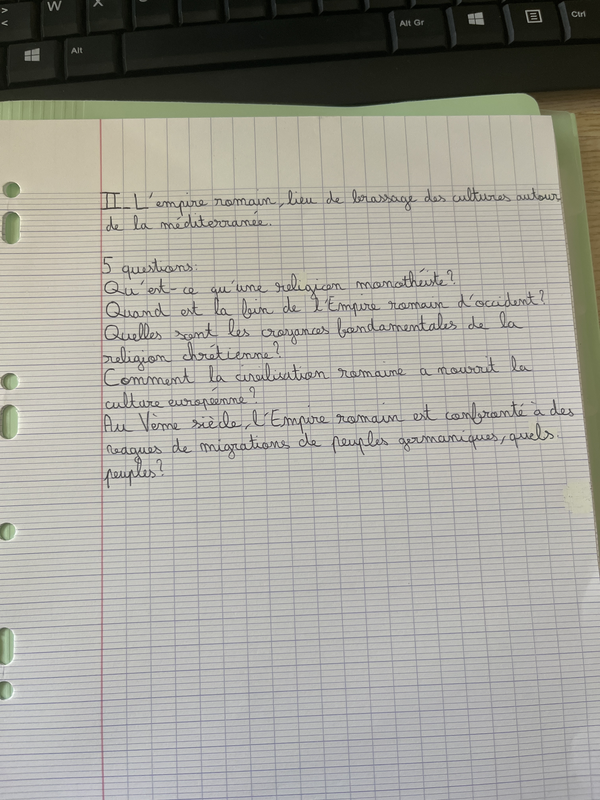 > <
W
X
Alt Gr
Ctrl
Alt
II_ L'empire romain, lieu de brassage des cultures autour
de la méditerranée.
5 questions:
Qu'est-ce qu'une religion monothéiste?
Quand est la fin de l'Empire romain d'occident?
Quelles sont les croyances fondamentales de la
religion chrétienne?
Comment la civilisation romaine a nourrit la
culture européenne?
Au Vème siècle, l'Empire romain est confronté à des
vagues de migrations de peuples germaniques, quels
peuples?